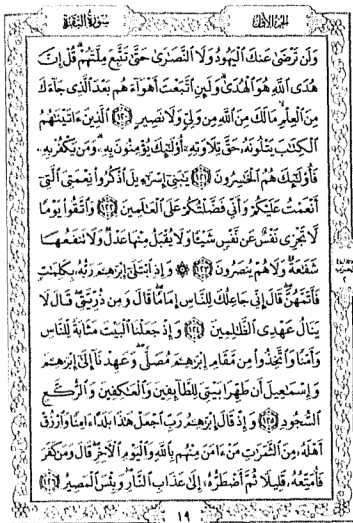 الجزء الأول
سورة البقرة
وَلَن تَرْضَىٰ عَنكَ ٱلْيَهُودُ وَلَا ٱلنَّصَٰرَىٰ حَتَّىٰ تَتَّبِعَ مِلَّتَهُمْ ۗ قُلْ إِنَّ
هُدَى ٱللَّهِ هُوَ ٱلْهُدَىٰ ۗ وَلَئِنِ ٱتَّبَعْتَ أَهْوَآءَهُم بَعْدَ ٱلَّذِى جَآءَكَ
مِنَ ٱلْعِلْمِ ۙ مَا لَكَ مِنَ ٱللَّهِ مِن وَلِىٍّ وَلَا نَصِيرٍ ﴿١٢٠﴾ ٱلَّذِينَ ءَاتَيْنَٰهُمُ
ٱلْكِتَٰبَ يَتْلُونَهُۥ حَقَّ تِلَاوَتِهِۦٓ أُو۟لَٰٓئِكَ يُؤْمِنُونَ بِهِۦ ۗ وَمَن يَكْفُرْ بِهِۦ
فَأُو۟لَٰٓئِكَ هُمُ ٱلْخَٰسِرُونَ ﴿١٢١﴾ يَٰبَنِىٓ إِسْرَٰٓءِيلَ ٱذْكُرُوا۟ نِعْمَتِىَ ٱلَّتِىٓ
أَنْعَمْتُ عَلَيْكُمْ وَأَنِّى فَضَّلْتُكُمْ عَلَى ٱلْعَٰلَمِينَ ﴿١٢٢﴾ وَٱتَّقُوا۟ يَوْمًا
لَّا تَجْزِى نَفْسٌ عَن نَّفْسٍ شَيْـًٔا وَلَا يُقْبَلُ مِنْهَا عَدْلٌ وَلَا تَنفَعُهَا
شَفَٰعَةٌ وَلَا هُمْ يُنصَرُونَ ﴿١٢٣﴾ ۞ وَإِذِ ٱبْتَلَىٰٓ إِبْرَٰهِۦمَ رَبُّهُۥ بِكَلِمَٰتٍ
فَأَتَمَّهُنَّ ۖ قَالَ إِنِّى جَاعِلُكَ لِلنَّاسِ إِمَامًا ۖ قَالَ وَمِن ذُرِّيَّتِى ۖ قَالَ لَا
يَنَالُ عَهْدِى ٱلظَّٰلِمِينَ ﴿١٢٤﴾ وَإِذْ جَعَلْنَا ٱلْبَيْتَ مَثَابَةً لِّلنَّاسِ
وَأَمْنًا وَٱتَّخِذُوا۟ مِن مَّقَامِ إِبْرَٰهِۦمَ مُصَلًّى ۖ وَعَهِدْنَآ إِلَىٰٓ إِبْرَٰهِۦمَ
وَإِسْمَٰعِيلَ أَن طَهِّرَا بَيْتِىَ لِلطَّآئِفِينَ وَٱلْعَٰكِفِينَ وَٱلرُّكَّعِ
ٱلسُّجُودِ ﴿١٢٥﴾ وَإِذْ قَالَ إِبْرَٰهِۦمُ رَبِّ ٱجْعَلْ هَٰذَا بَلَدًا ءَامِنًا وَٱرْزُقْ
أَهْلَهُۥ مِنَ ٱلثَّمَرَٰتِ مَنْ ءَامَنَ مِنْهُم بِٱللَّهِ وَٱلْيَوْمِ ٱلْءَاخِرِ ۖ قَالَ وَمَن كَفَرَ
فَأُمَتِّعُهُۥ قَلِيلًا ثُمَّ أَضْطَرُّهُۥٓ إِلَىٰ عَذَابِ ٱلنَّارِ ۖ وَبِئْسَ ٱلْمَصِيرُ ﴿١٢٦﴾
١٩